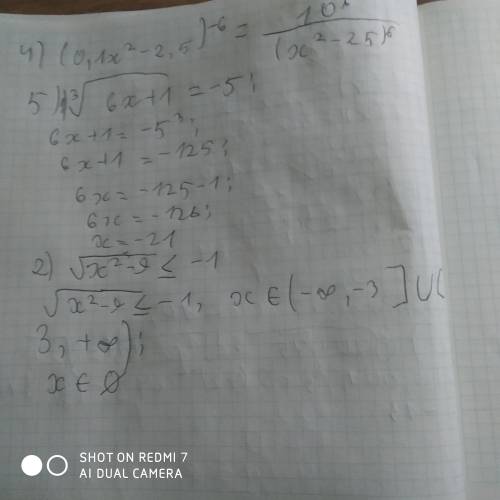 4) (0,1x²-2,5)⁻⁶ = 10⁶/(x²-25)⁶
5) 1) ³√(6x+1) = -5;
6x+1 = -5³;
6x+1 = -125;
6x = -125-1;
6x = -126;
x = -21
2) √(x²-9) ≤ -1
√(x²-9) ≤ -1, x ∈ (-∞, -3] ∪ (
3, +∞);
x ∈ ∅
SHOT ON REDMI 7
AI DUAL CAMERA